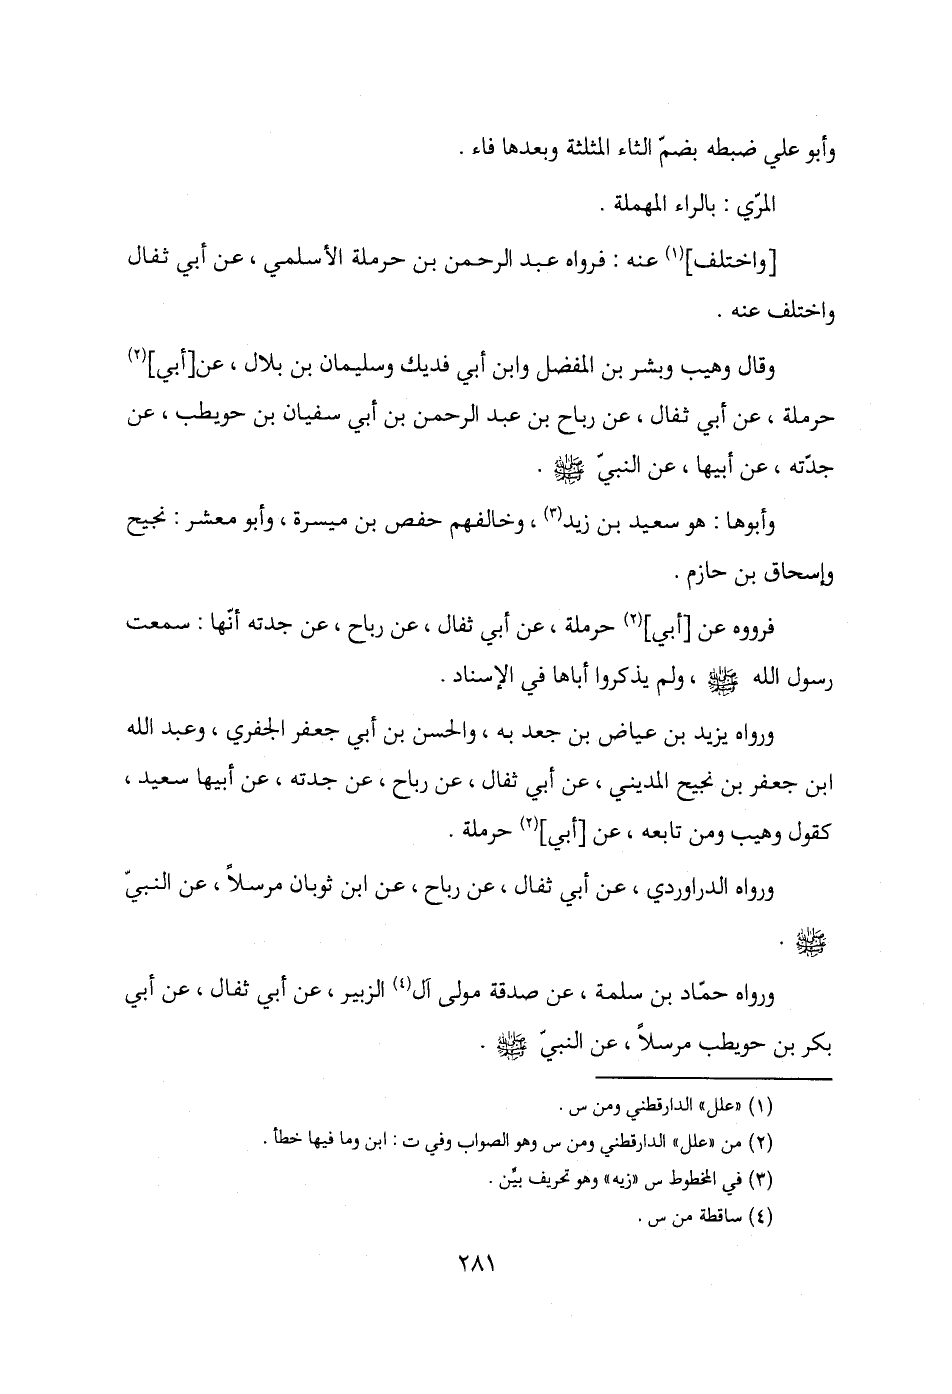 وأبو علي ضبطه بضمّ الثاء المثلثة وبعدها فاء .
المرّي : بالراء المهملة .
[واختلف](١) عنه : فرواه عبد الرحمن بن حرملة الأسلمي ، عن أبي ثفال
واختلف عنه .
وقال وهيب وبشر بن المفضل وابن أبي فديك وسليمان بن بلال ، عن[أبي](٢)
حرملة ، عن أبي ثفال ، عن رباح بن عبد الرحمن بن أبي سفيان بن حويطب ، عن
جدّته ، عن أبيها ، عن النبيّ ﷺ .
وأبوها : هو سعيد بن زيد(٣) ، وخالفهم حفص بن ميسرة ، وأبو معشر : نجيح
وإسحاق بن حازم .
فرووه عن [أبي](٢) حرملة ، عن أبي ثفال ، عن رباح ، عن جدته أنّها : سمعت
رسول الله ﷺ ، ولم يذكروا أباها في الإسناد .
ورواه يزيد بن عياض بن جعد به ، والحسن بن أبي جعفر الجفري ، وعبد الله
ابن جعفر بن نجيح المديني ، عن أبي ثفال ، عن رباح ، عن جدته ، عن أبيها سعيد ،
كقول وهيب ومن تابعه ، عن [أبي](٢) حرملة .
ورواه الدراوردي ، عن أبي ثفال ، عن رباح ، عن ابن ثوبان مرسلاً ، عن النبيّ
ﷺ .
ورواه حمّاد بن سلمة ، عن صدقة مولى آل(٤) الزبير ، عن أبي ثفال ، عن أبي
بكر بن حويطب مرسلاً ، عن النبيّ ﷺ .
(١) «علل» الدارقطني ومن س .
(٢) من «علل» الدارقطني ومن س وهو الصواب وفي ت : ابن وما فيها خطأ .
(٣) في المخطوط س «زيه» وهو تحريف بيِّن .
(٤) ساقطة من س .
٢٨١